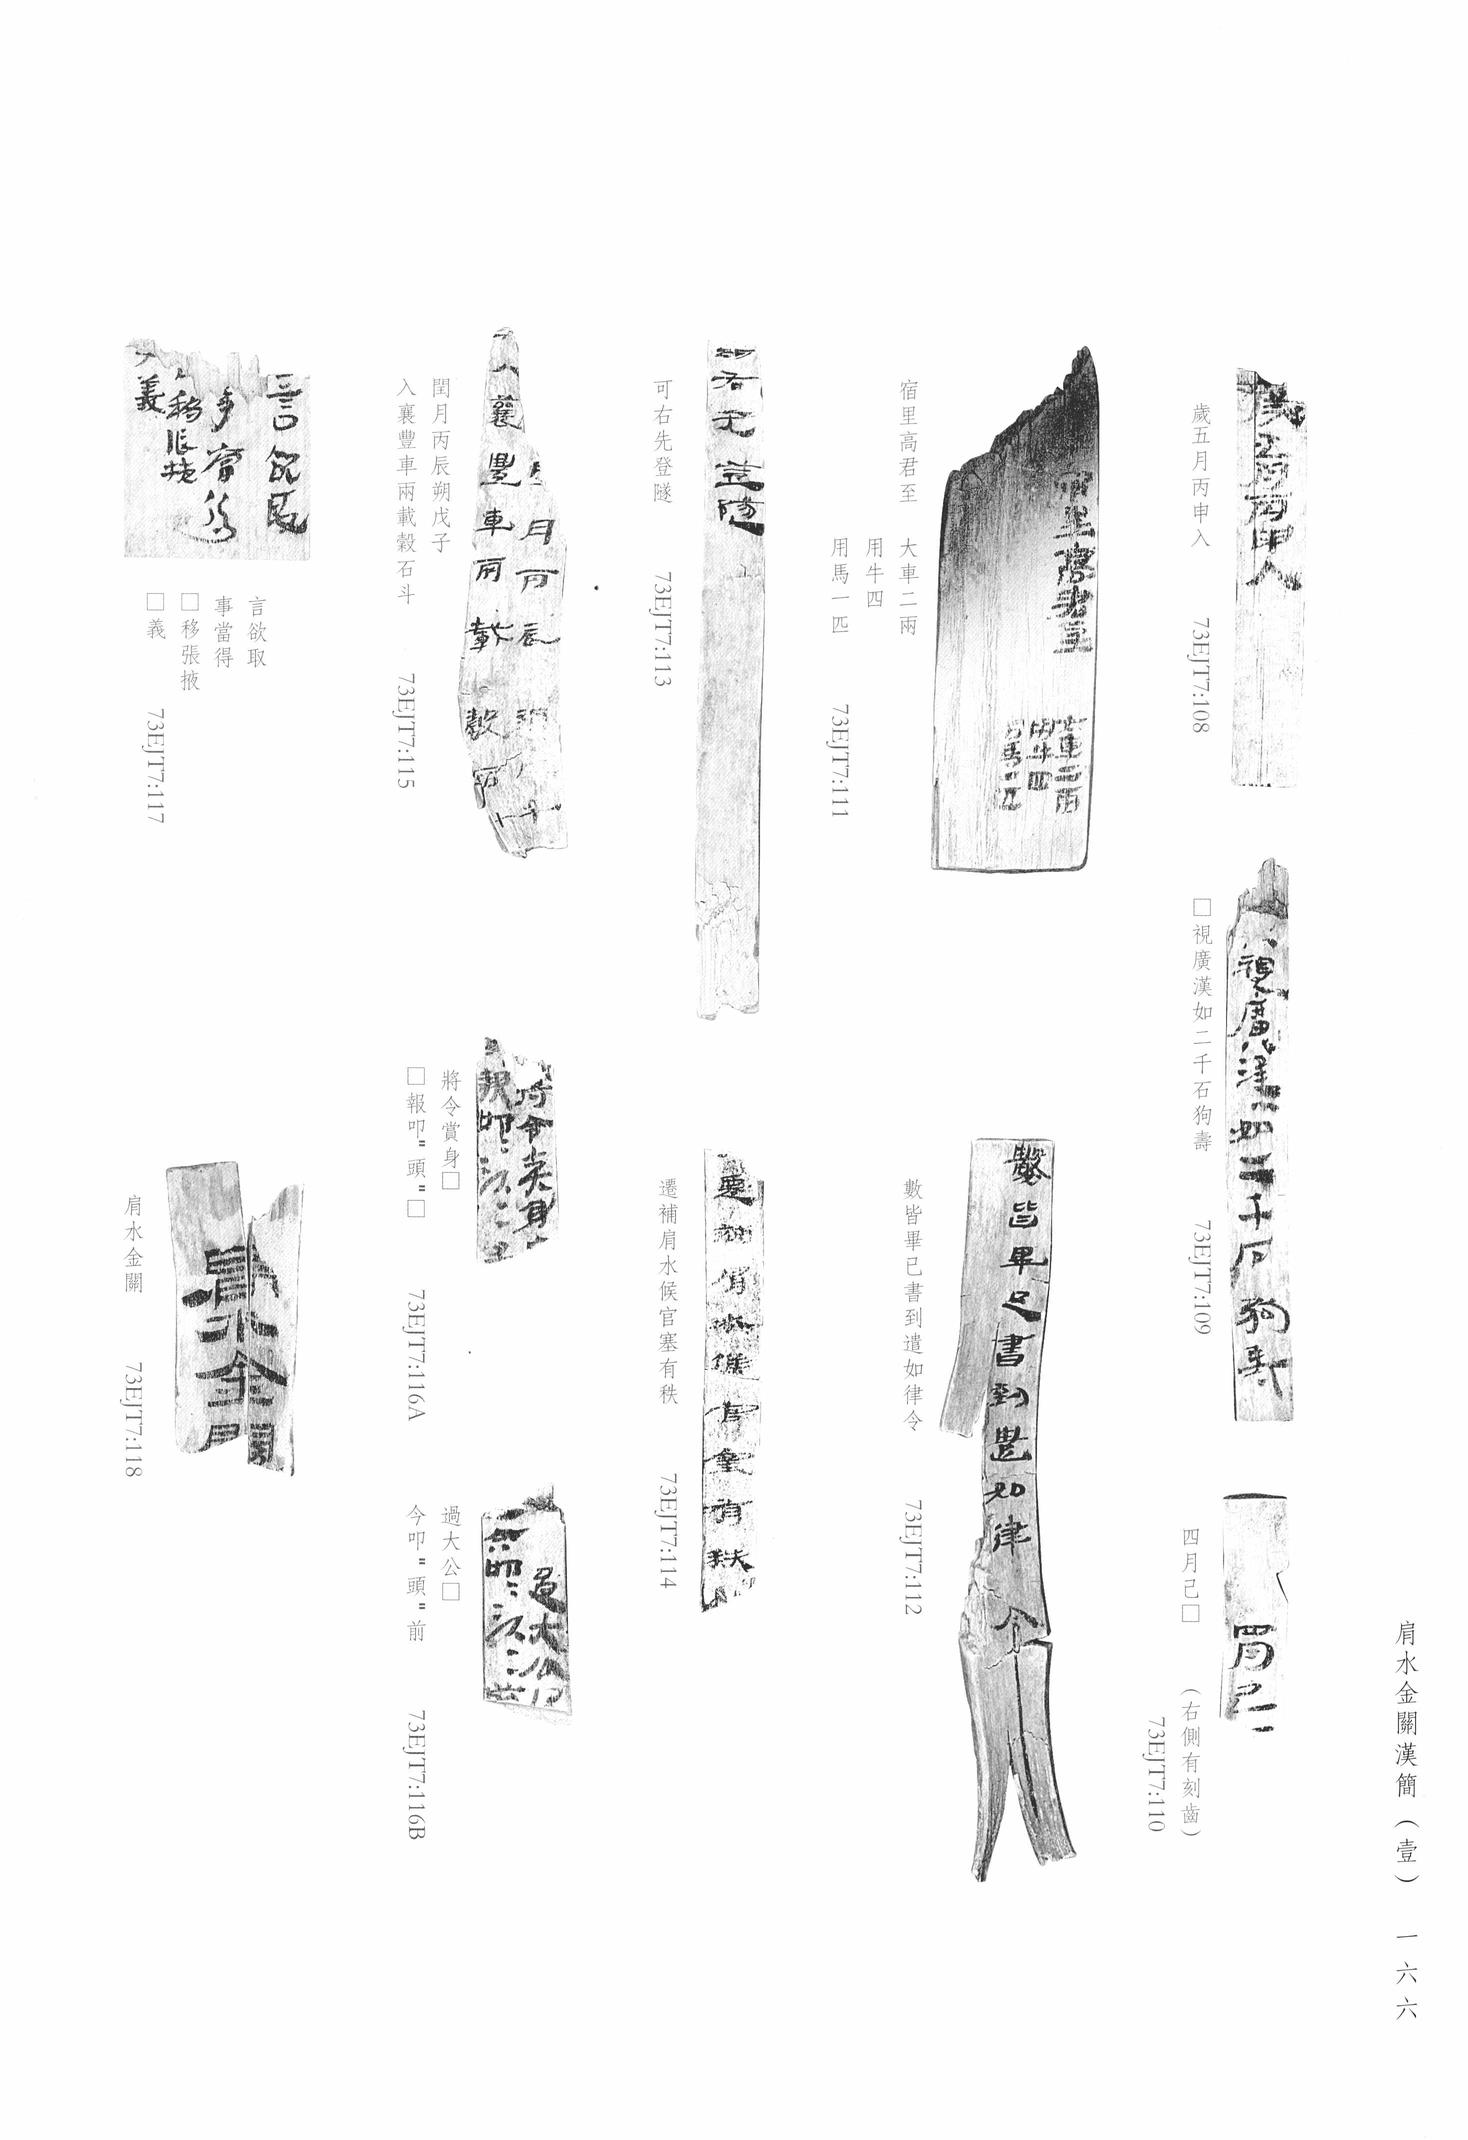 肩水金關漢簡（壹） 一六六
歲五月丙申入 73EJT7:108
□視廣漢如二千石狗壽 73EJT7:109
四月己□ （右側有刻齒）
73EJT7:110
宿里高君至 大車二兩
用牛四
用馬一匹 73EJT7:111
數皆畢已書到遣如律令 73EJT7:112
可右先登隧 73EJT7:113
遷補肩水候官塞有秩 73EJT7:114
閏月丙辰朔戊子
入襄豐車兩載穀石斗 73EJT7:115
將令賞身□
□報叩〓頭〓□ 73EJT7:116A
過大公□
今叩〓頭〓前 73EJT7:116B
言欲取
事當得
□移張掖
□義 73EJT7:117
肩水金關 73EJT7:118